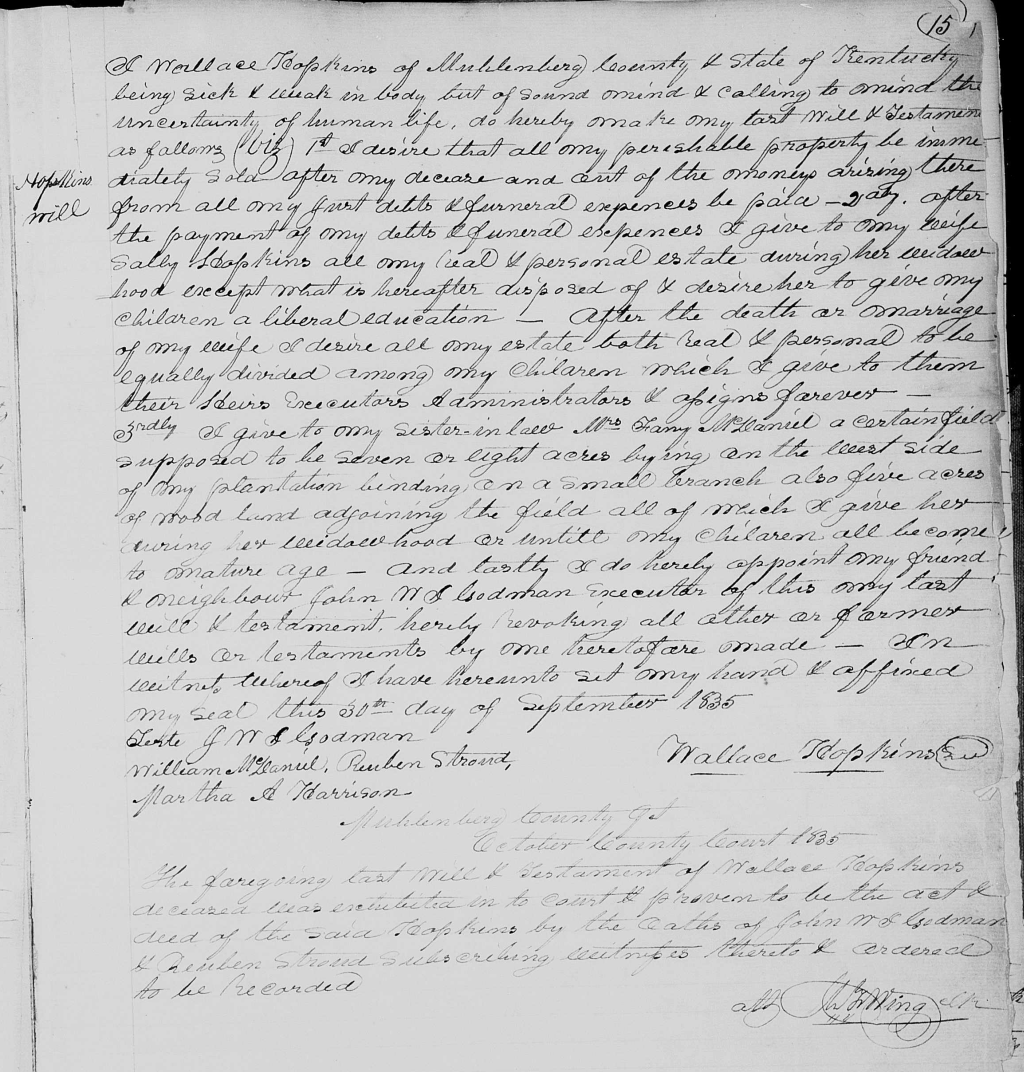 15
I Wallace Hopkins of Muhlenberg County & State of Kentucky
being sick & weak in body but of sound mind & calling to mind the
uncertainty of human life, do hereby make my last will & Testament
as follows (viz) 1st I desire that all my perishable property be imme
Hopkins will
diately sold after my decease and out of the moneys arising there
from all my just debts & furneral expences be paid – 2dly. after
the payment of my debts & funeral expences I give to my wife
Sally Hopkins all my real & personal estate during her widow
hood except what is hereafter disposed of & desire her to give my
children a liberal education – After the death or marriage
of my wife I desire all my estate both real & personal to be
equally divided among my children which I give to them
their Heirs Executors Administrators & assigns forever –
3rdly I give to my sister-in law Mrs Fany McDaniel a certain field
supposed to be seven or eight acres lying on the west side
of my plantation binding on a small branch also five acres
of wood land adjoining the field all of which I give her
during her widowhood or untill my children all become
to mature age – and lastly I do hereby appoint my friend
& neighbour John W I Godman Executor of this my last
will & testament. hereby revoking all other or former
wills or testaments by me heretofore made – In
witness whereof I have hereunto set my hand & affixed
my seal this 30th day of September 1835
Teste J W I Godman
William McDaniel, Reuben Stroud,
Wallace Hopkins
Martha A Harrison
Muhlenberg County
October County Court 1835
The foregoing last Will & Testament of Wallace Hopkins
deceased was exhibited in to court & proven to be the act &
deed of the said Hopkins by the Oaths of John W I Godman
& Reuben Stroud subscribing witnesses thereto & ordered
to be recorded
att Wing clk